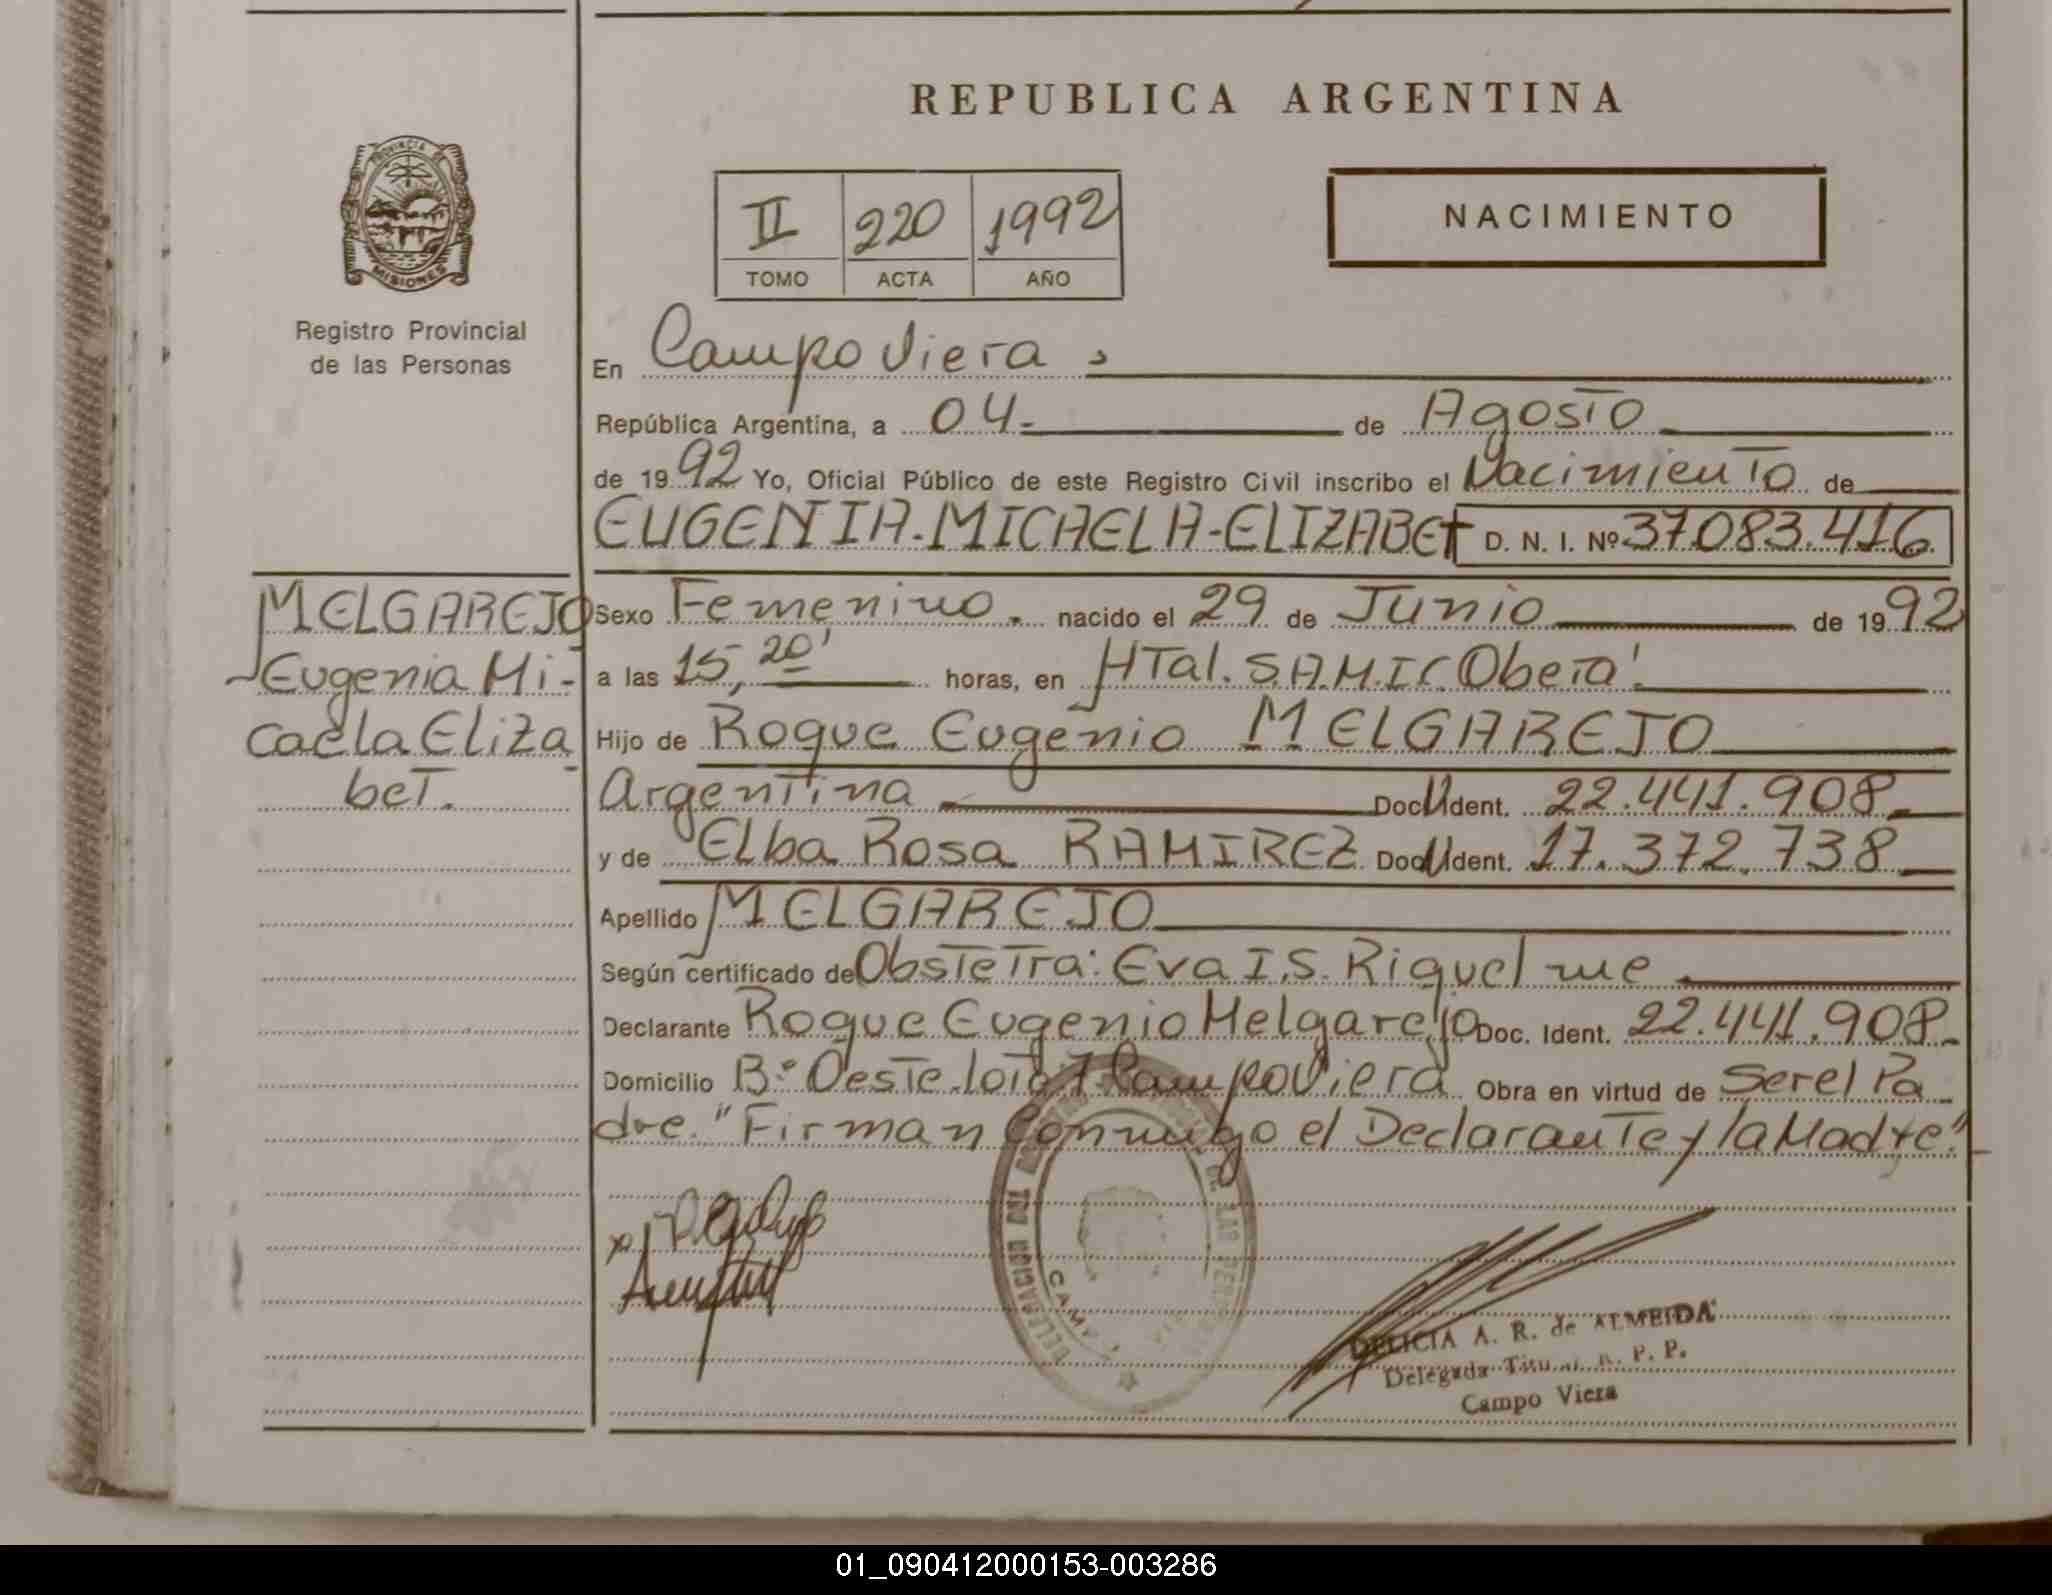 REPUBLICA ARGENTINA
PROVINCIA DE
MISIONES
Registro Provincial
de las Personas
II 220 1992
TOMO ACTA AÑO
NACIMIENTO
En Campo Viera,
República Argentina, a 04- de Agosto
de 1992 Yo, Oficial Público de este Registro Civil inscribo el Nacimiento de
EUGENIA-MICAELA-ELIZABET D. N. I. Nº 37083.416
MELGAREJO
Eugenia Mi-
caela Eliza
bet.
Sexo Femenino. nacido el 29 de Junio de 1992
a las 15,20' horas, en HTal. S.A.M.I.C. Oberá
Hijo de Roque Eugenio MELGAREJO
Argentina Doc U Ident. 22.441.908
y de Elba Rosa RAMIREZ Doc U Ident. 17.372.738
Apellido MELGAREJO
Según certificado de Obstetra: Eva I.S. Riquelme
Declarante Roque Eugenio Melgarejo Doc. Ident. 22.441.908-
Domicilio Bº Oeste Lote 7 Campo Viera Obra en virtud de Ser el Pa
dre. "Firman Conmigo el Declarante y la Madre."
DELEGACION DEL REGISTRO DE LAS PERSONAS
DELICIA A. R. de ALMEIDA
Delegada R. P. P.
Campo Viera
01_090412000153-003286